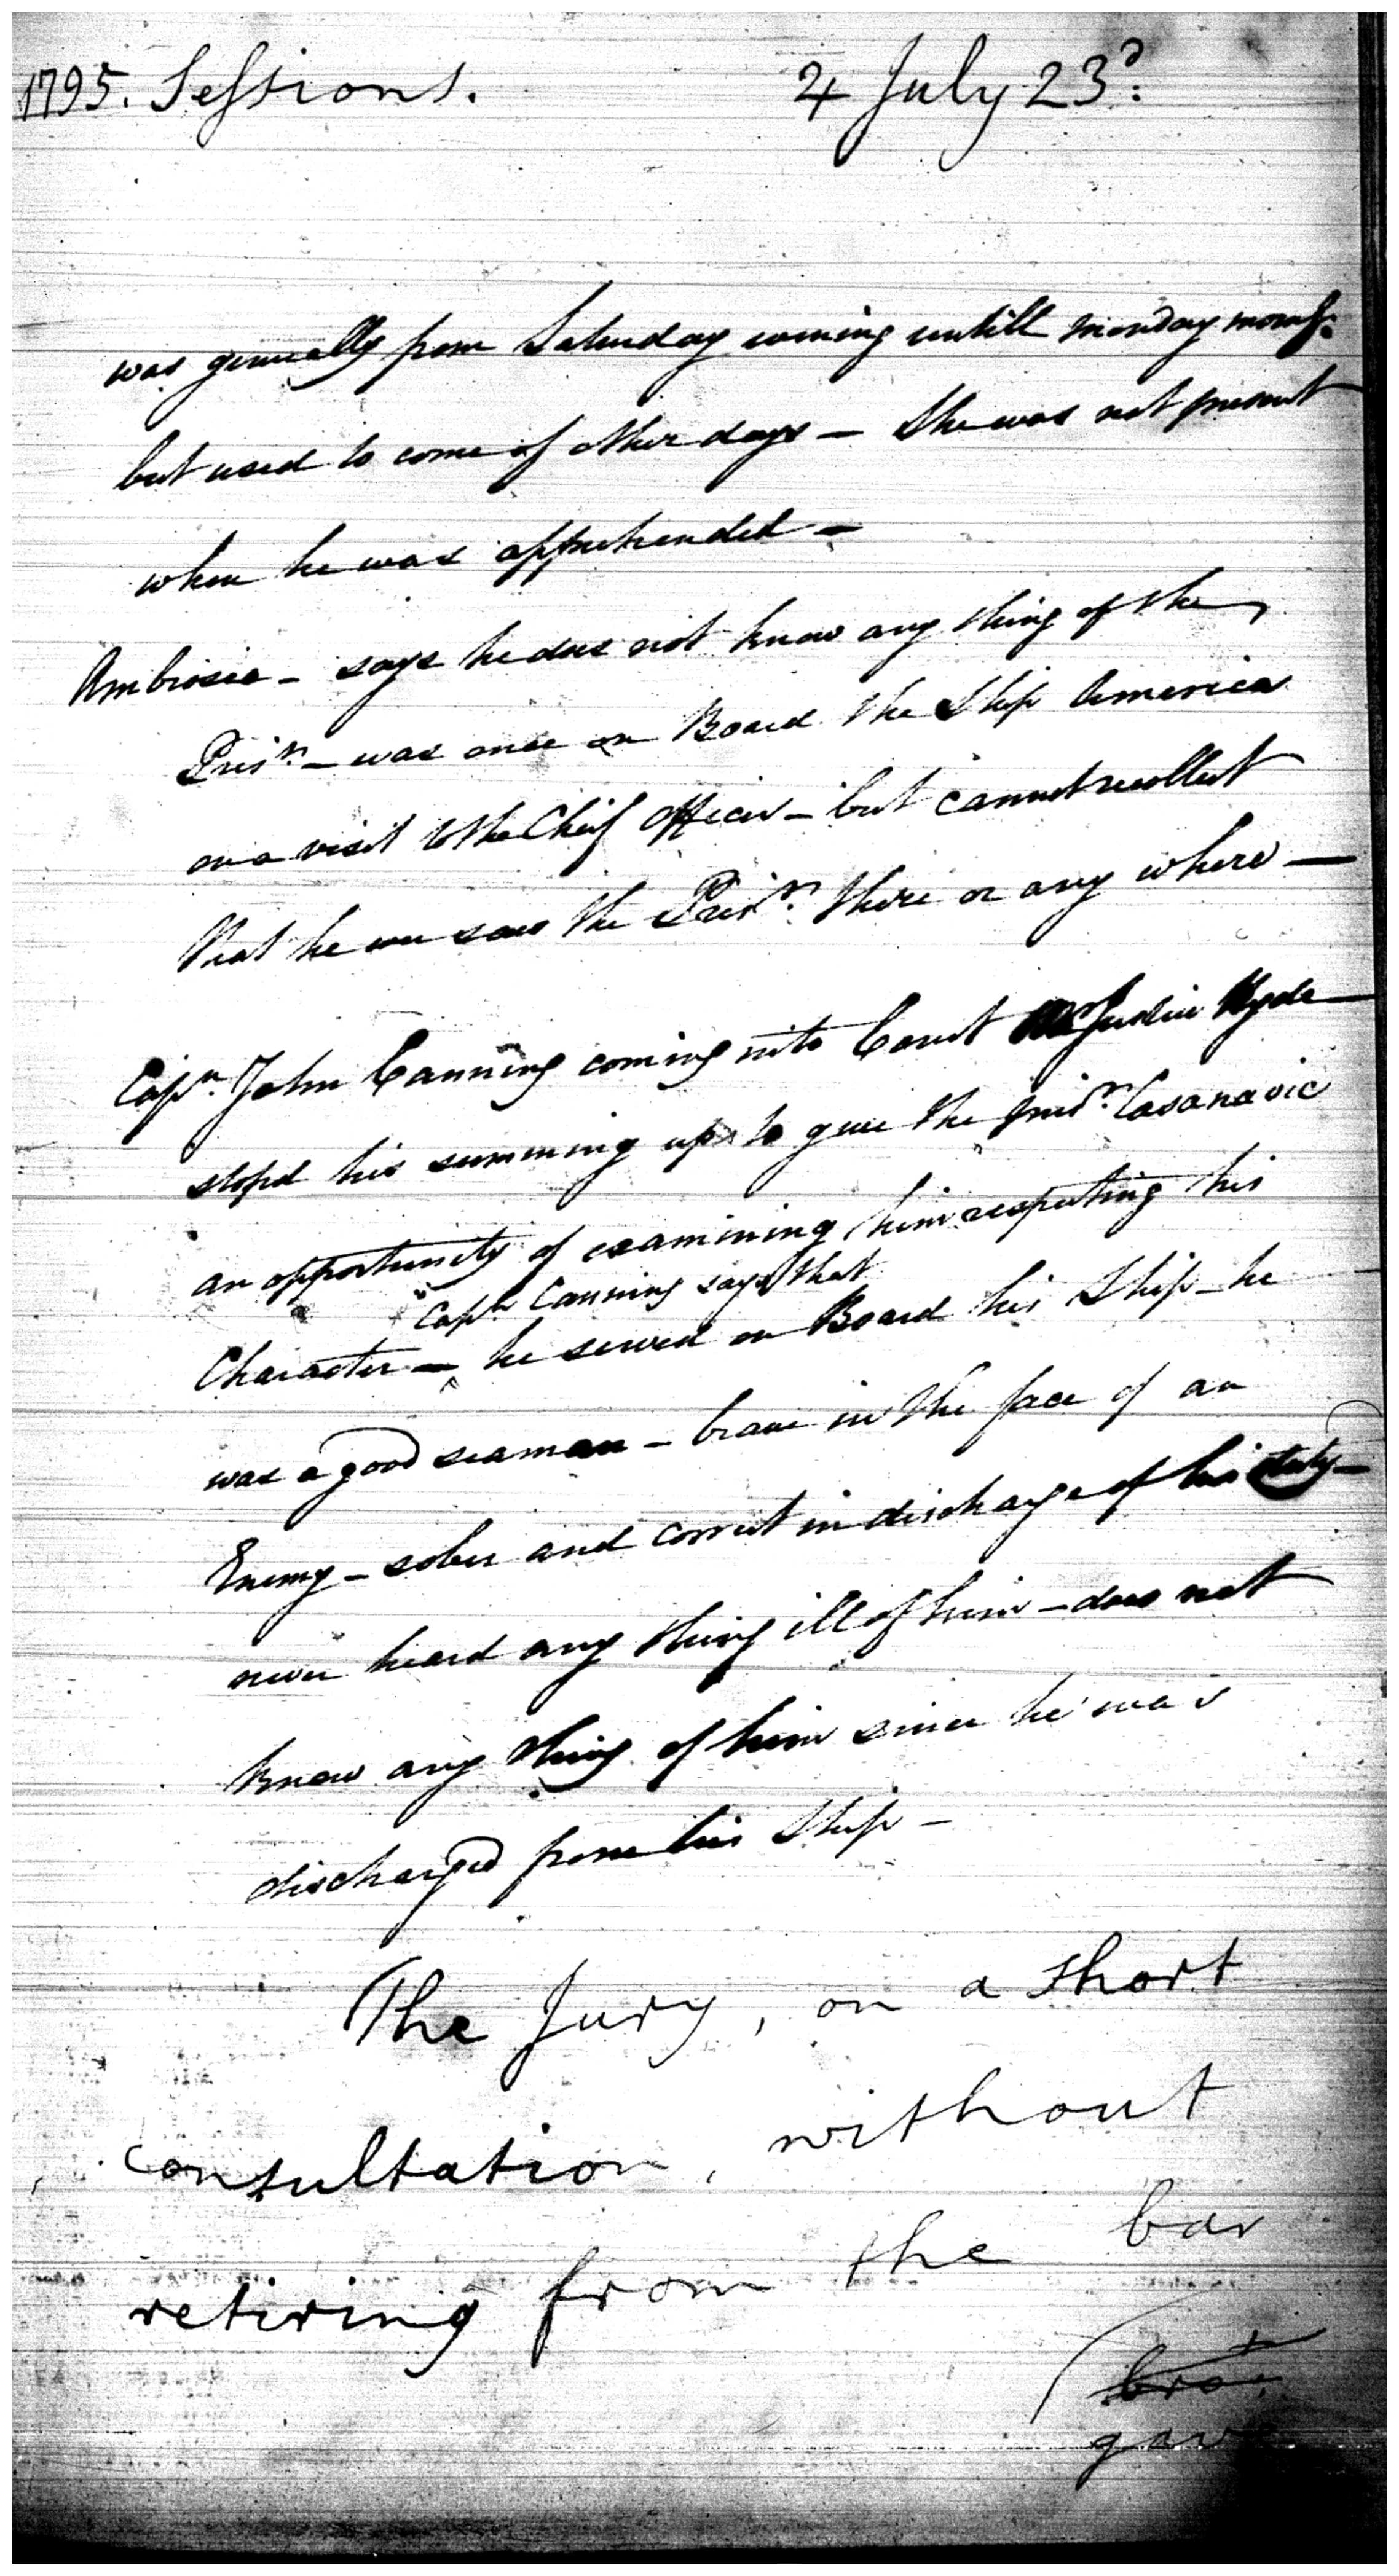 1795. Sessions. 4 July 23d:
was generally from Saturday evening untill monday morng:
but used to come of other days — She was not present
when he was apprehended —
Ambrosio — says he does not know any thing of the
Prisr. — was once on Board the Ship America
on a visit to the Chief Officer — but cannot recollect
that he ever saw the Prisr. there or any where —
Capn. John Canning coming into Court Mr Justice Hyde
stopd his summing up to give the prisr. Casanavie
an opportunity of examining him respecting his
Capn Canning says that
Character — he served on Board his Ship — he
was a good seaman — brave in the face of an
Enemy — sober and correct in discharge of his duty —
never heard any thing ill of him — does not
know any thing of him since he was
discharged from his Ship —
The Jury, on a short
consultation, without
retiring from the bar
gave